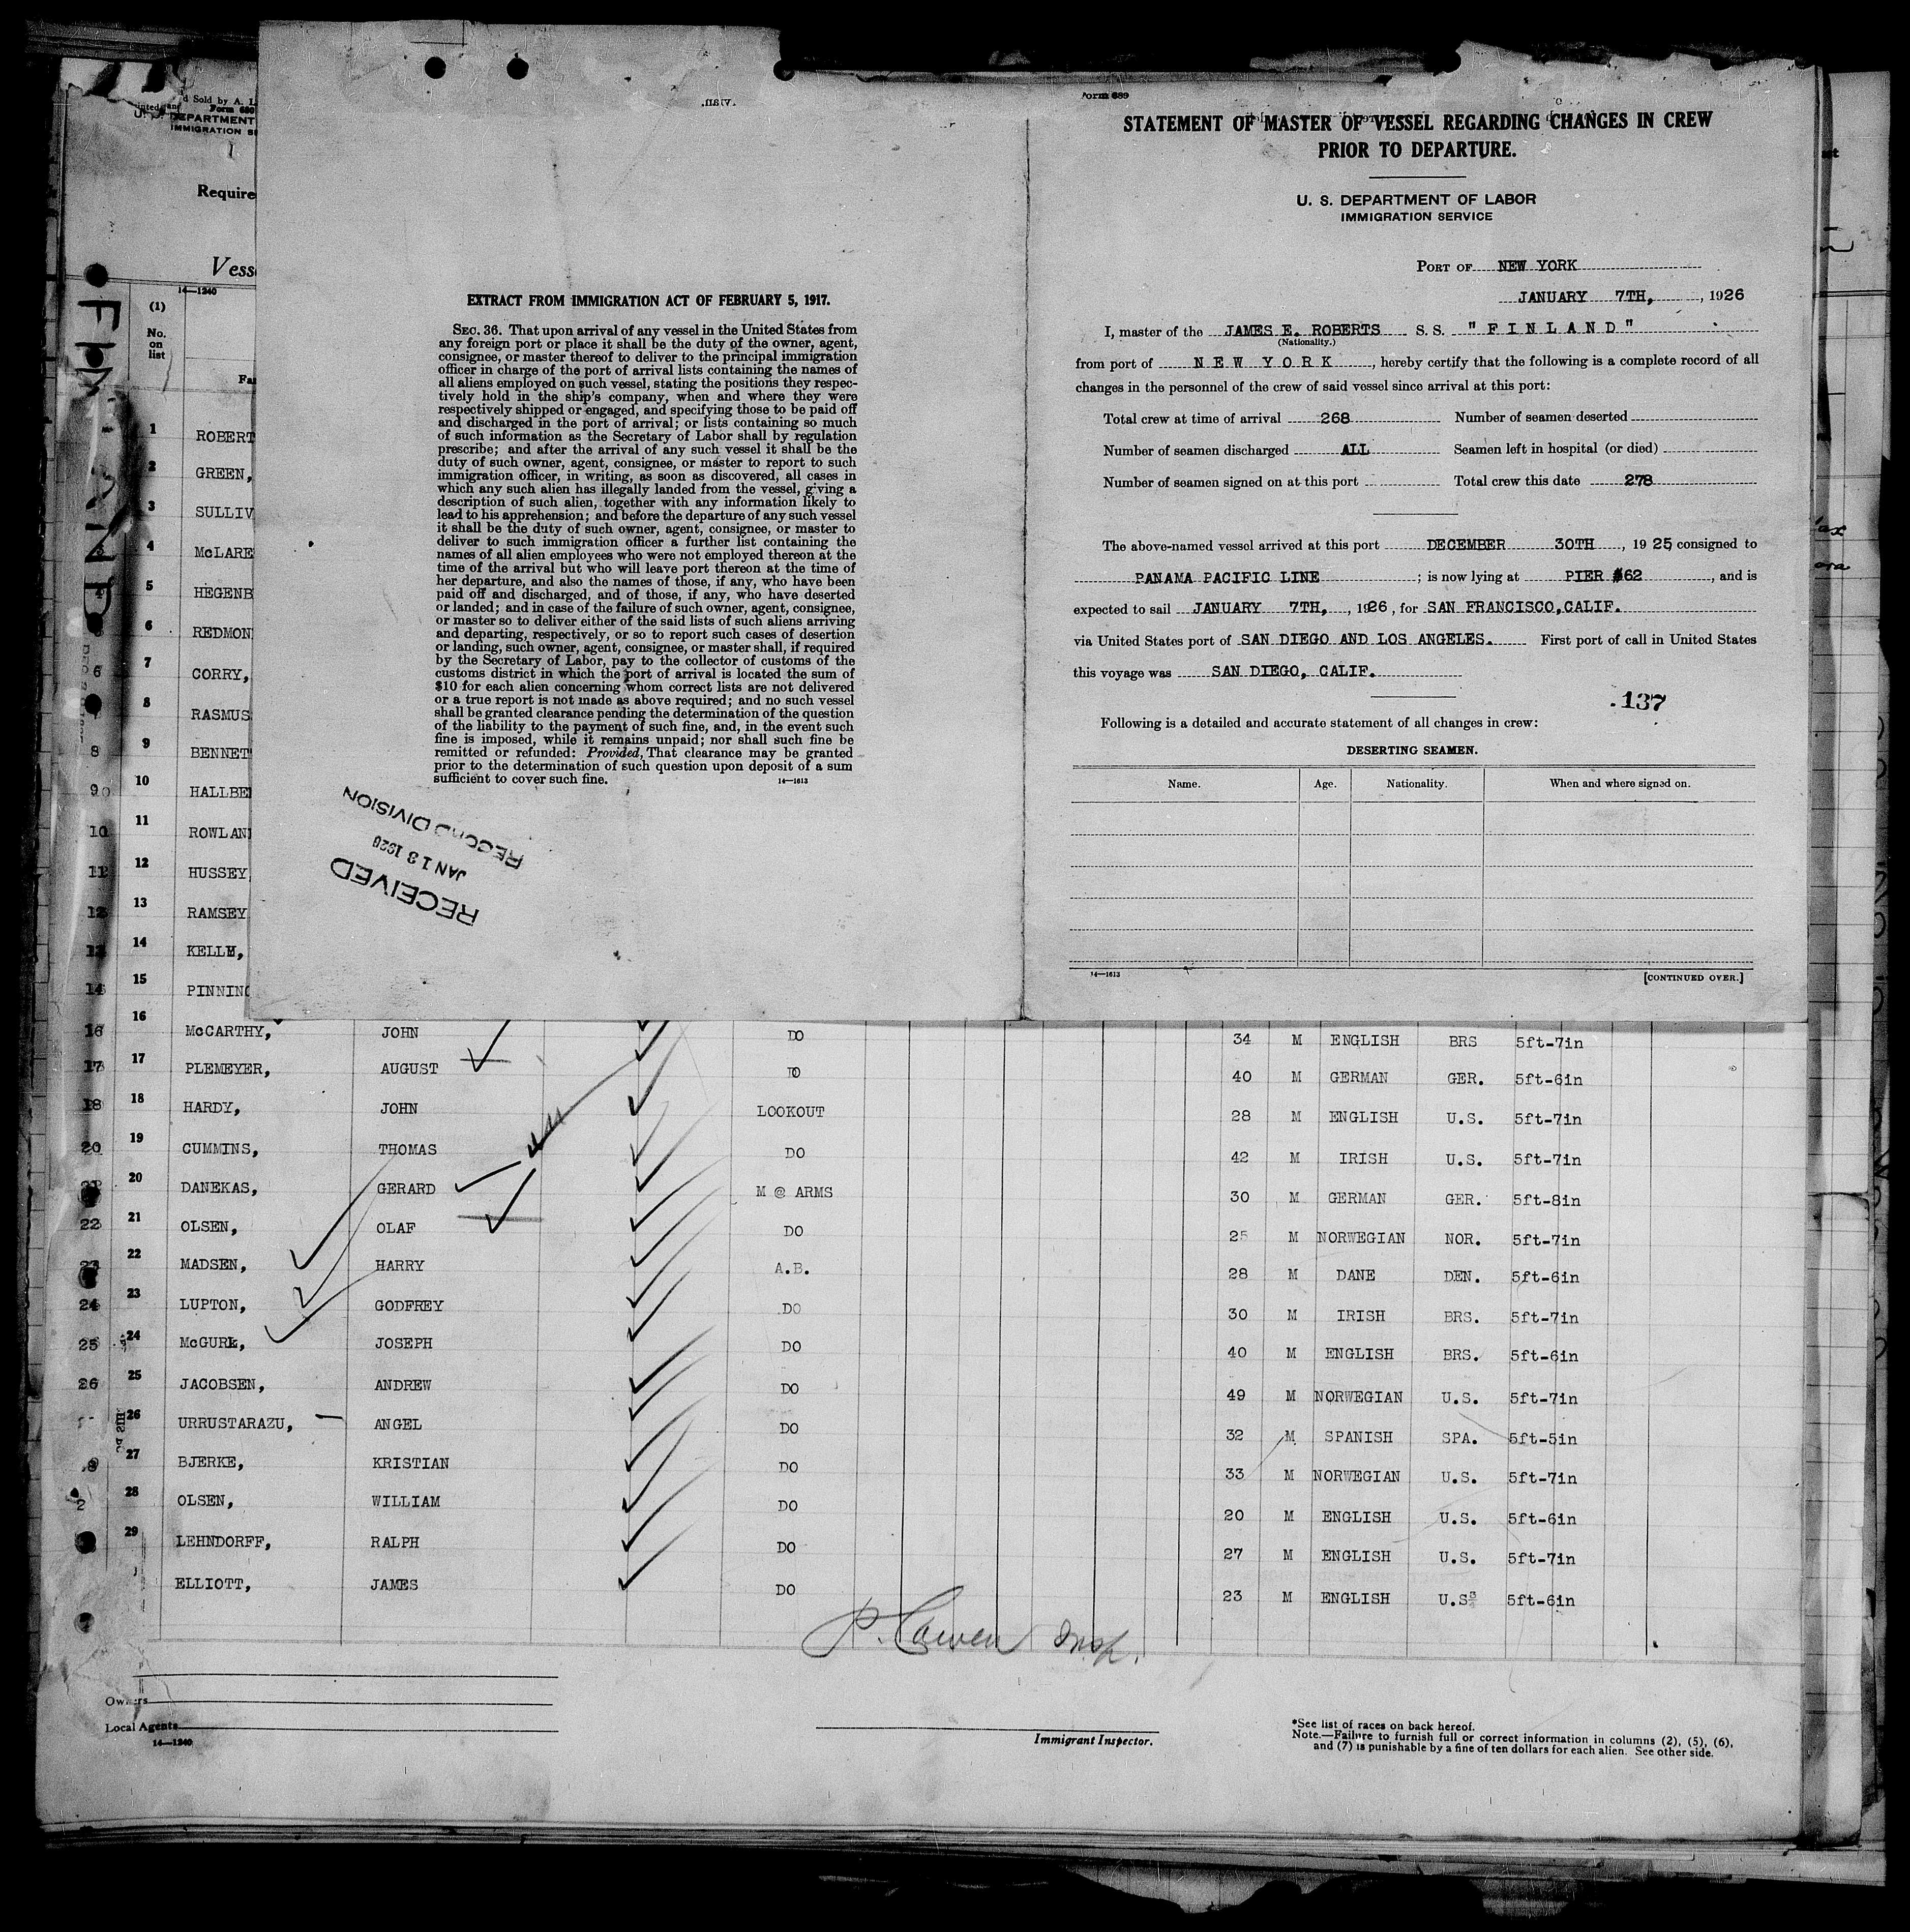 d Sold by A. L
Form 680
U. S. DEPARTMENT
IMMIGRATION SE
Require
Vess
14—1240
(1)
No.
on
list
Fa
FINLAND
1 ROBERT
2 GREEN,
3 SULLIV
4 McLARE
5 HEGENB
6 REDMON
7 CORRY,
8 RASMUS
9 BENNET
10 HALLBE
11 ROWLAN
12 HUSSEY
13 RAMSEY
14 KELLY,
15 PINNING
EXTRACT FROM IMMIGRATION ACT OF FEBRUARY 5, 1917.
SEC. 36. That upon arrival of any vessel in the United States from
any foreign port or place it shall be the duty of the owner, agent,
consignee, or master thereof to deliver to the principal immigration
officer in charge of the port of arrival lists containing the names of
all aliens employed on such vessel, stating the positions they respec-
tively hold in the ship's company, when and where they were
respectively shipped or engaged, and specifying those to be paid off
and discharged in the port of arrival; or lists containing so much
of such information as the Secretary of Labor shall by regulation
prescribe; and after the arrival of any such vessel it shall be the
duty of such owner, agent, consignee, or master to report to such
immigration officer, in writing, as soon as discovered, all cases in
which any such alien has illegally landed from the vessel, giving a
description of such alien, together with any information likely to
lead to his apprehension; and before the departure of any such vessel
it shall be the duty of such owner, agent, consignee, or master to
deliver to such immigration officer a further list containing the
names of all alien employees who were not employed thereon at the
time of the arrival but who will leave port thereon at the time of
her departure, and also the names of those, if any, who have been
paid off and discharged, and of those, if any, who have deserted
or landed; and in case of the failure of such owner, agent, consignee,
or master so to deliver either of the said lists of such aliens arriving
and departing, respectively, or so to report such cases of desertion
or landing, such owner, agent, consignee, or master shall, if required
by the Secretary of Labor, pay to the collector of customs of the
customs district in which the port of arrival is located the sum of
$10 for each alien concerning whom correct lists are not delivered
or a true report is not made as above required; and no such vessel
shall be granted clearance pending the determination of the question
of the liability to the payment of such fine, and, in the event such
fine is imposed, while it remains unpaid; nor shall such fine be
remitted or refunded: Provided, That clearance may be granted
prior to the determination of such question upon deposit of a sum
sufficient to cover such fine.
14—1613
RECEIVED
JAN 13 1926
RECORD DIVISION
Form 689
STATEMENT OF MASTER OF VESSEL REGARDING CHANGES IN CREW
PRIOR TO DEPARTURE.
U. S. DEPARTMENT OF LABOR
IMMIGRATION SERVICE
PORT OF NEW YORK
JANUARY 7TH, , 1926
I, master of the JAMES E. ROBERTS S. S. "FINLAND"
(Nationality.)
from port of NEW YORK, hereby certify that the following is a complete record of all
changes in the personnel of the crew of said vessel since arrival at this port:
Total crew at time of arrival 268 Number of seamen deserted
Number of seamen discharged ALL Seamen left in hospital (or died)
Number of seamen signed on at this port Total crew this date 278
The above-named vessel arrived at this port DECEMBER 30TH, 1925 consigned to
PANAMA PACIFIC LINE ; is now lying at PIER #62 , and is
expected to sail JANUARY 7TH, , 1926, for SAN FRANCISCO, CALIF.
via United States port of SAN DIEGO AND LOS ANGELES. First port of call in United States
this voyage was SAN DIEGO, CALIF.
137
Following is a detailed and accurate statement of all changes in crew:
DESERTING SEAMEN.
Name. Age. Nationality. When and where signed on.
14—1613
[CONTINUED OVER.]
16 McCARTHY, JOHN DO 34 M ENGLISH BRS 5ft-7in
17 PLEMEYER, AUGUST DO 40 M GERMAN GER. 5ft-6in
18 HARDY, JOHN LOOKOUT 28 M ENGLISH U.S. 5ft-7in
19 CUMMINS, THOMAS DO 42 M IRISH U.S. 5ft-7in
20 DANEKAS, GERARD M @ ARMS 30 M GERMAN GER. 5ft-8in
21 OLSEN, OLAF DO 25 M NORWEGIAN NOR. 5ft-7in
22 MADSEN, HARRY A.B. 28 M DANE DEN. 5ft-6in
23 LUPTON, GODFREY DO 30 M IRISH BRS. 5ft-7in
24 McGURK, JOSEPH DO 40 M ENGLISH BRS. 5ft-6in
25 JACOBSEN, ANDREW DO 49 M NORWEGIAN U.S. 5ft-7in
26 URRUSTARAZU, ANGEL DO 32 M SPANISH SPA. 5ft-5in
27 BJERKE, KRISTIAN DO 33 M NORWEGIAN U.S. 5ft-7in
28 OLSEN, WILLIAM DO 20 M ENGLISH U.S. 5ft-6in
29 LEHNDORFF, RALPH DO 27 M ENGLISH U.S. 5ft-7in
ELLIOTT, JAMES DO 23 M ENGLISH U.S. 5ft-6in
P. Cowen Insp.
Owners
Local Agents
14—1240
Immigrant Inspector.
*See list of races on back hereof.
Note.—Failure to furnish full or correct information in columns (2), (5), (6),
and (7) is punishable by a fine of ten dollars for each alien. See other side.